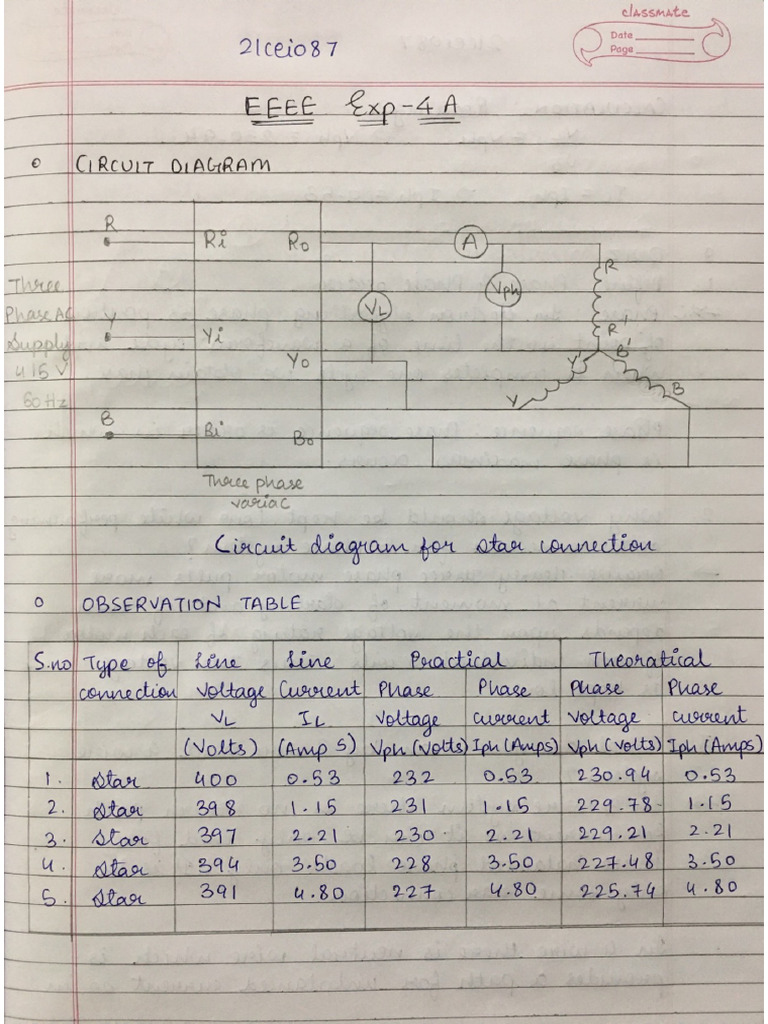 classmate
Date
Page
21CEI087
EEEE Exp-4A
CIRCUIT DIAGRAM
R
Ri
Ro
A
R
Three
Phase AC
Supply
415 V
60 Hz
VL
Vph
R'
Y
Yi
Yo
Y'
B'
Y
B
B
Bi
Bo
Three phase
variac
Circuit diagram for star connection
OBSERVATION TABLE
S.no Type of Line Line Practical Theoratical
connection Voltage Current Phase Phase Phase Phase
VL IL Voltage current voltage current
(Volts) (Amp s) Vph (Volts) Iph (Amps) Vph (Volts) Iph (Amps)
1. Star 400 0.53 232 0.53 230.94 0.53
2. Star 398 1.15 231 1.15 229.78 1.15
3. Star 397 2.21 230 2.21 229.21 2.21
4. Star 394 3.50 228 3.50 227.48 3.50
5. Star 391 4.80 227 4.80 225.74 4.80